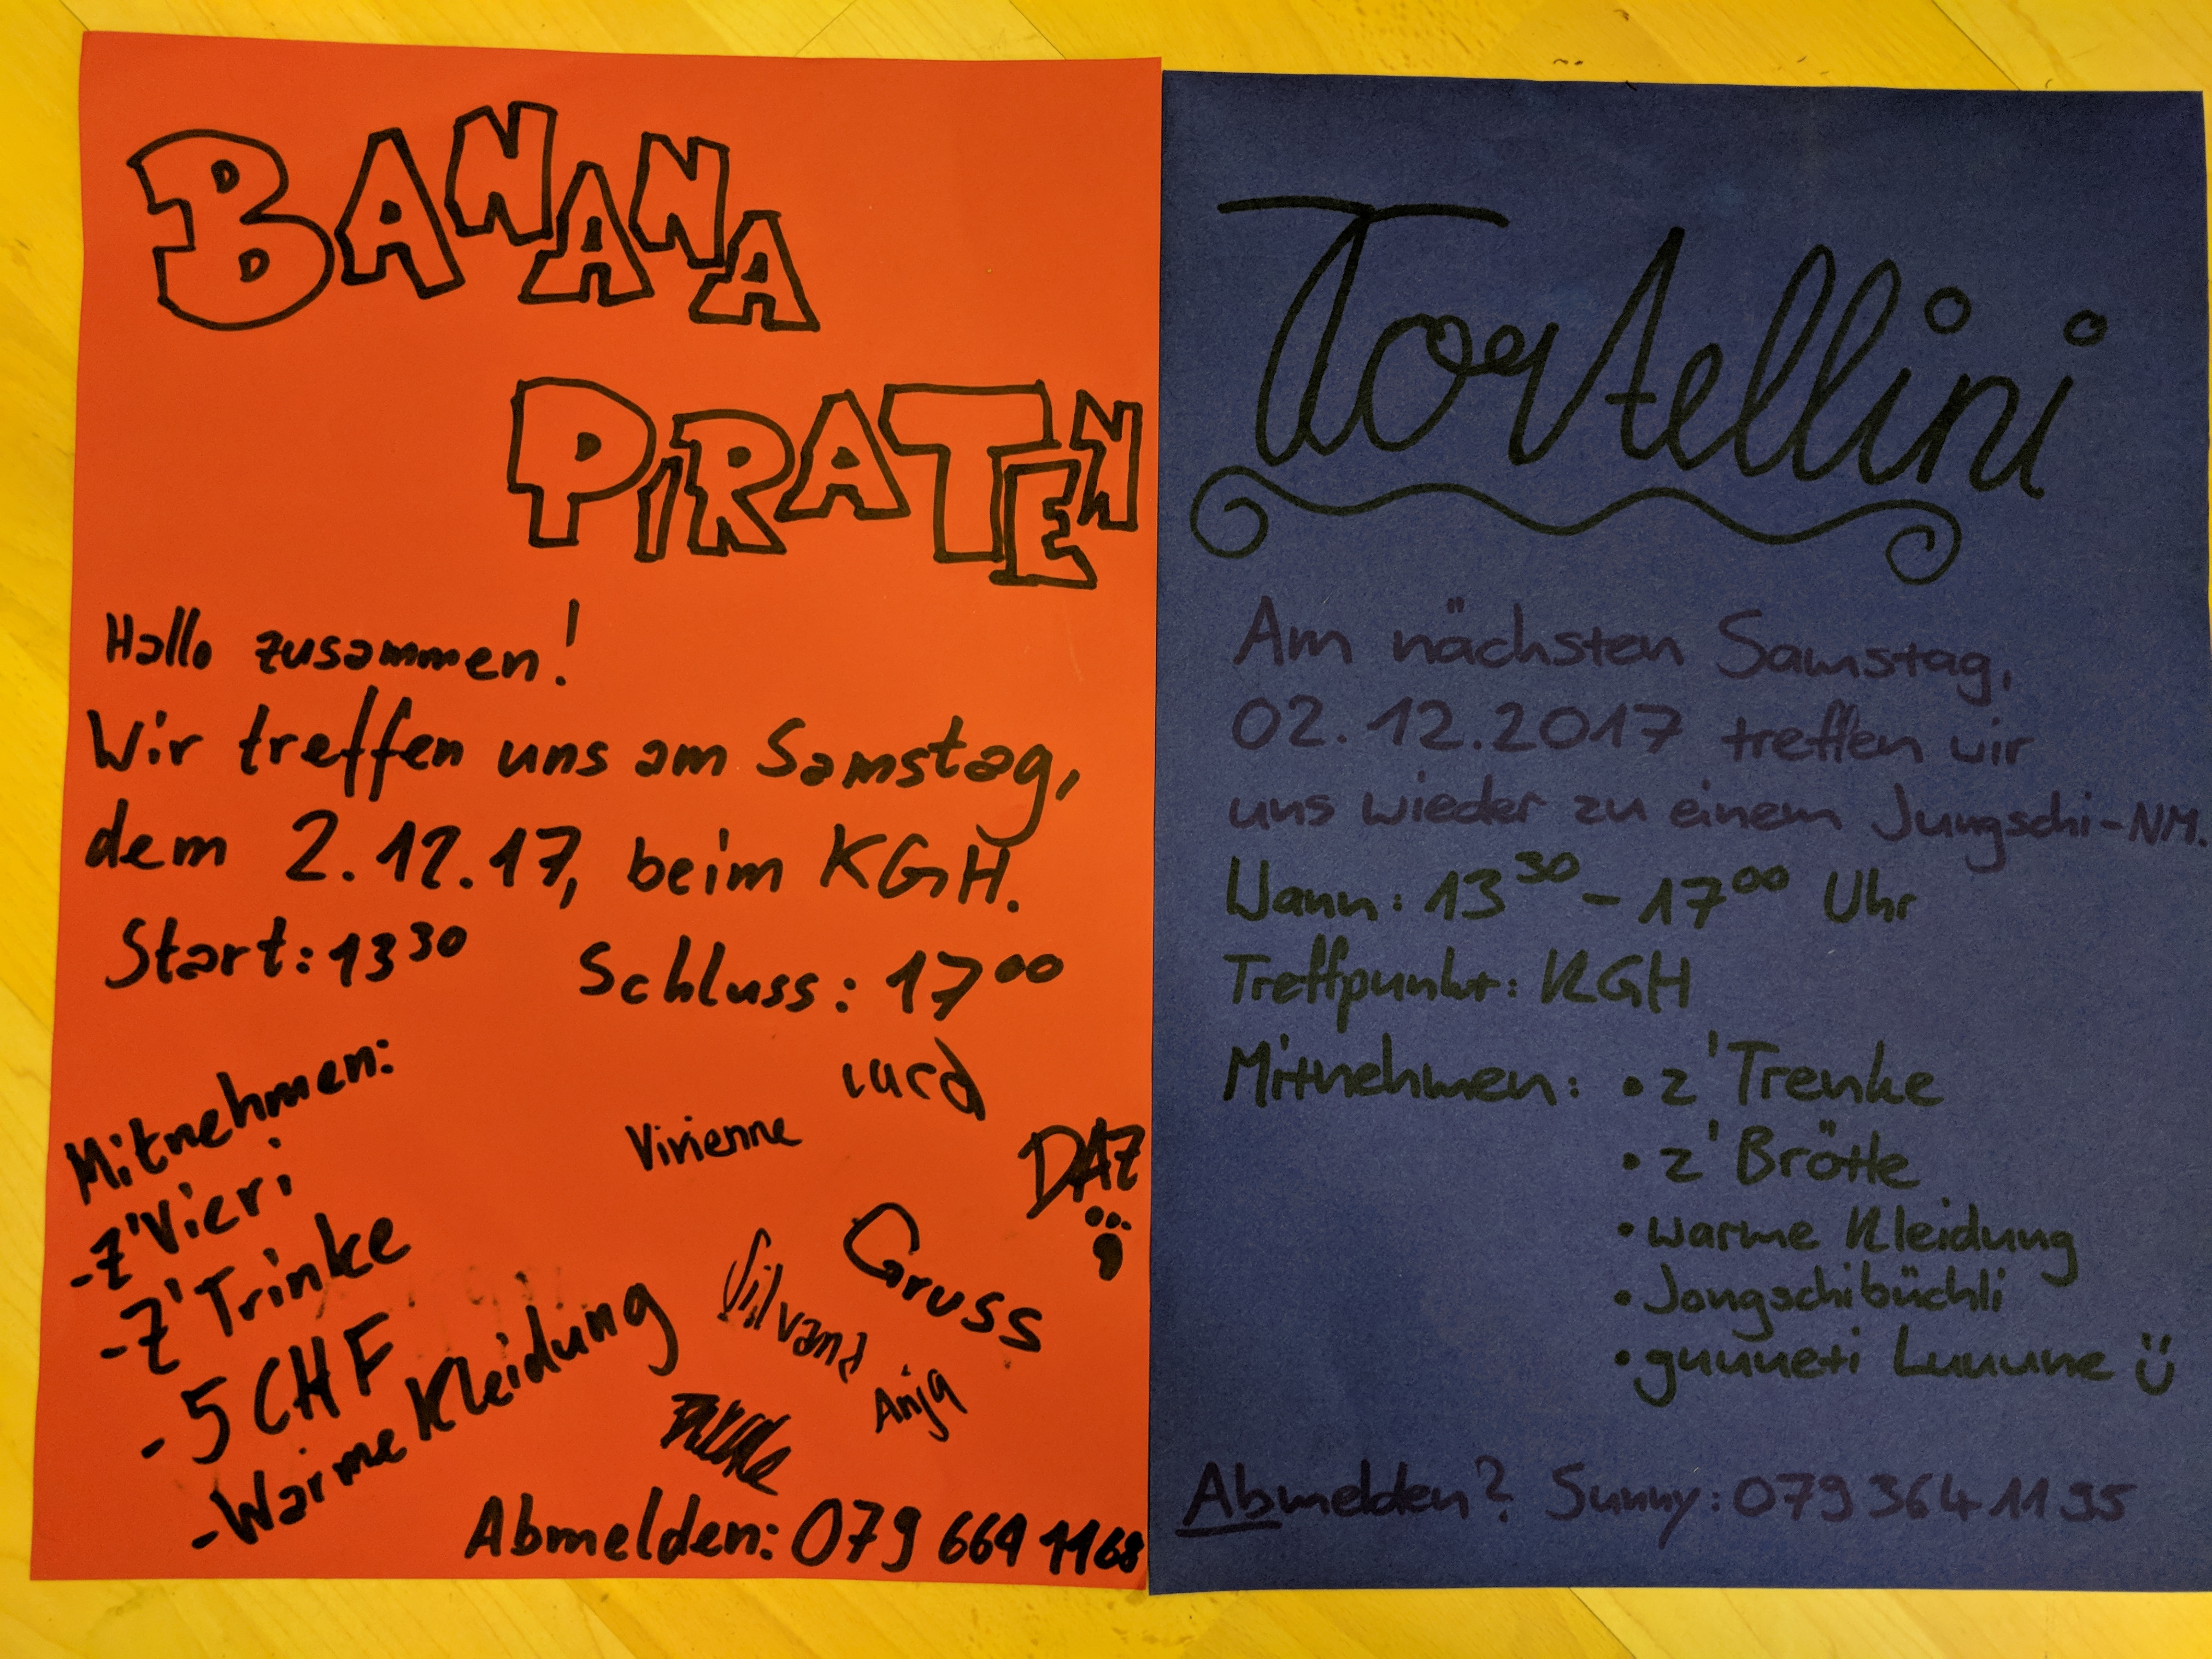 BANANA
PIRATEN
Hallo zusammen!
Wir treffen uns am Samstag,
dem 2.12.17, beim KGH.
Start: 13³⁰ Schluss: 17⁰⁰
Mitnehmen:
- Z'Vieri
- Z'Trinke
- 5 CHF
- Warme Kleidung
Vivienne
DAZ
Gruss
Silvana
Anja
Abmelden: 079 664 11 68
Tortellini
Am nächsten Samstag,
02.12.2017 treffen wir
uns wieder zu einem Jungschi-NM.
Wann: 13³⁰ - 17⁰⁰ Uhr
Treffpunkt: KGH
Mitnehmen: • z'Trenke
• z'Brötle
• warme Kleidung
• Jongschibüchli
• guuueti Luuune
Abmelden? Sunny: 079 364 11 95